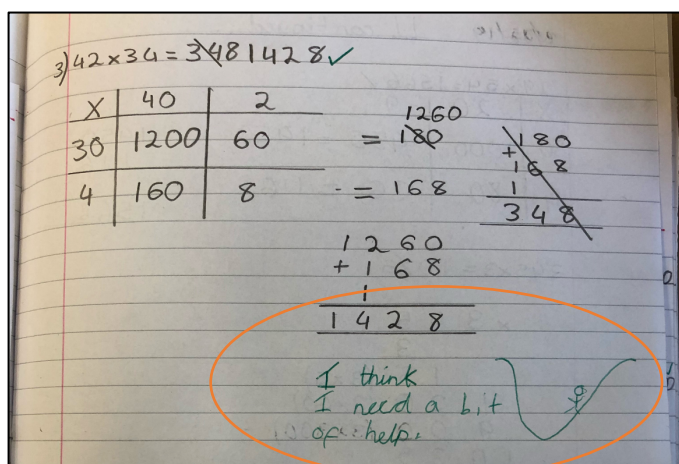 3) 42 × 34 = 348 1428 ✓
× 40 2
30 1200 60 = 180 1260
4 160 8 = 168
180
+
168
1
348
1260
+ 168
1
1428
I think
I need a bit
of help.